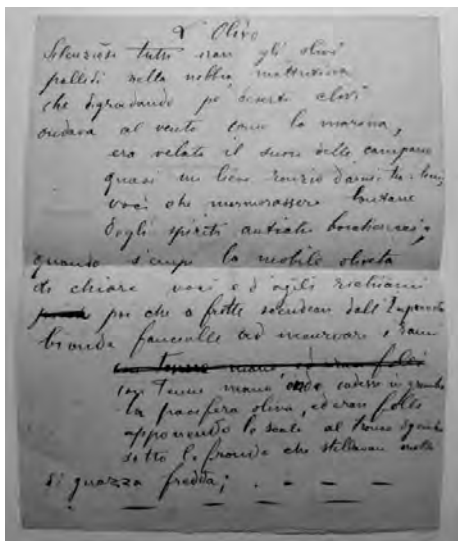 L'Olivo
Silenziosi tutti eran gli olivi
pallidi nella nebbia mattutina
che digradando pe' deserti clivi
ondava al vento come la marina,
era velato il suono delle campane
quasi un lieve ronzio d'
voci che mormorassero lontane
degli spiriti antichi
quando s'empì la mobile oliveta
di chiare voci e d'agili richiami
poi che a frotte scendean dall'
bionde fanciulle ad incurvare i rami
con tenere mani, ed eran folti
con tenue mano, onde cadesse in grembo
la pacifera oliva, ed eran folte
apponendo le scale al tronco sghembo
sotto le fronde che stillavan molte
di guazza fredda; . - - -